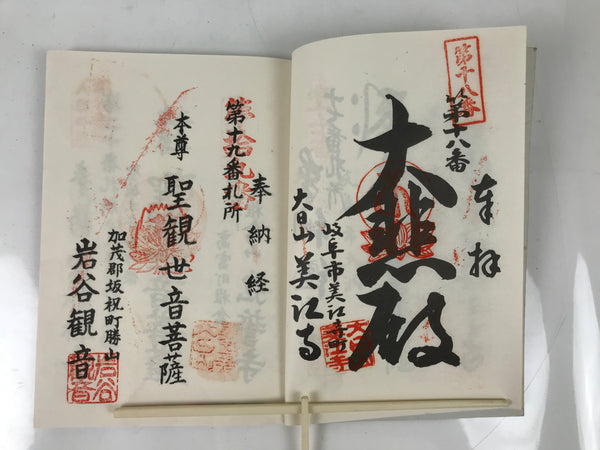 第十八番
第十八番
奉拝
大悲殿
岐阜市美江寺町
大日山 美江寺
奉納経
第十九番札所
本尊 聖観世音菩薩
加茂郡坂祝町勝山
岩谷観音